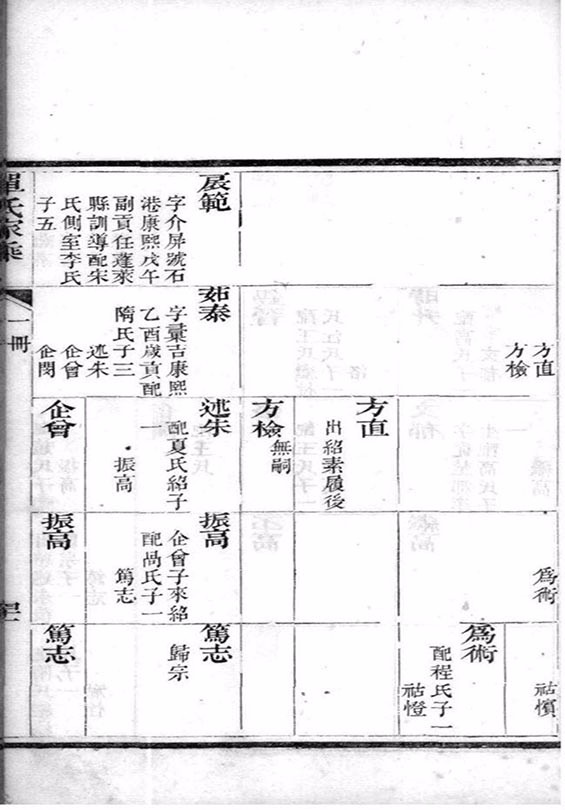 方直
方檢
方直
出紹素履後
方檢
無嗣
爲術
祜懫
爲術
配程氏子一
祜憕
扆範
字介屏號石
港康熙戊午
副貢任蓬萊
縣訓導配朱
氏側室李氏
子五
茹泰
字彙吉康熙
乙酉歲貢配
隋氏子三
述朱
企曾
企閔
述朱
配夏氏紹子
一
振高
振高
企曾子來紹
配咼氏子一
篤志
篤志
歸宗
企曾
振高
篤志
單氏家乘
一冊